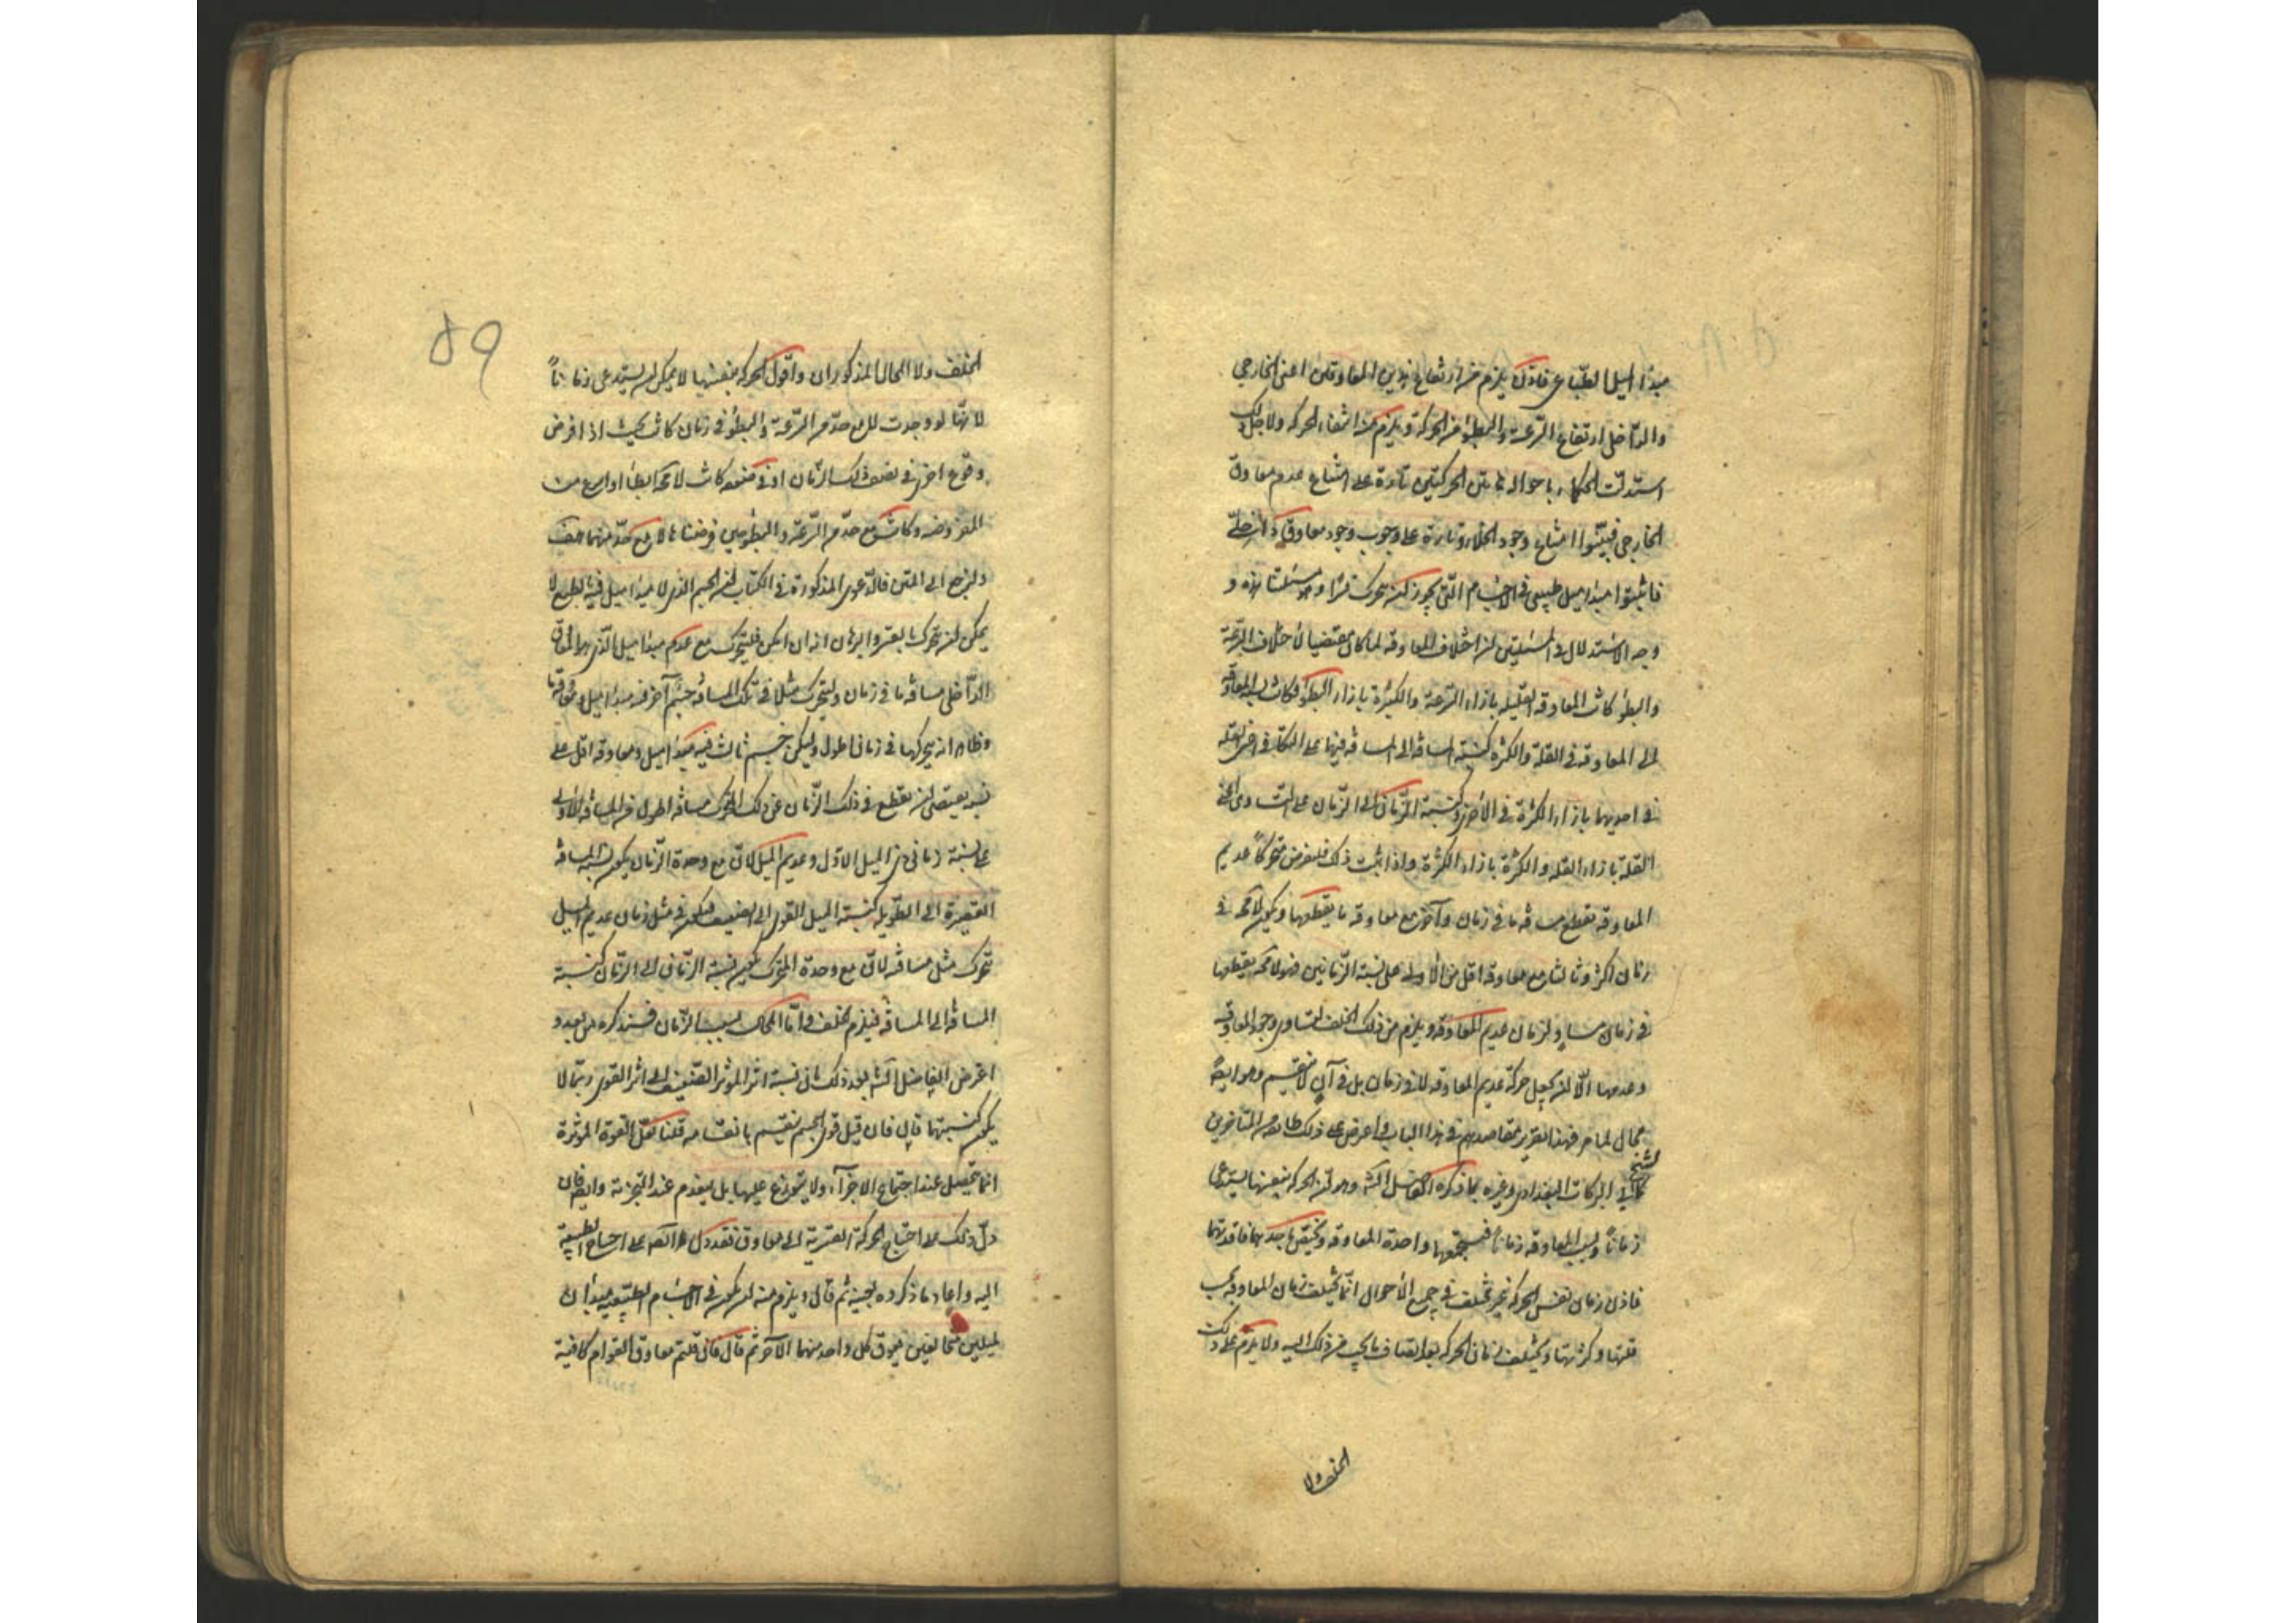 مبدأ الميل الطباعي فاذن يلزم من ارتفاع هذين المعاوقين اعنى الخارجي
والداخلي ارتفاع السرعة والبطؤ من الحركة ويلزم منه انتفاء الحركة ولاجل ذلك
استدلت الحكماء باحوال هاتين الحركتين تارة على امتناع عدم معاوق
الخارجي فبينوا امتناع وجود الخلاء وتارة على وجوب وجود معاوق داخلي
فاثبتوا مبدأ ميل طبيعي في الاجسام التي يجوز ان تتحرك قسرا وهو مسئلتنا هذه و
وجه الاستدلال في المسئلتين ان اختلاف المعاوقه لما كان مقتضيا لاختلاف السرعة
والبطؤ كانت المعاوقه القليله بازاء السرعة والكثيرة بازاء البطؤ فكانت نسبة المعاوقة
الى المعاوقه في القلة والكثره كنسبة المسافه الى المسافه فيها على التكافى اعنى القله
في احديهما بازاء الكثرة في الاخرى وكنسبة الزمان الى الزمان على التساوى اعنى
القلة بازاء القله والكثرة بازاء الكثرة واذا ثبت ذلك فلنفرض متحركاً عديم
المعاوقه يقطع مسافه ما في زمان وآخر مع معاوقه ما يقطعها ويكون لا محه في
زمان اكثر وثالثا مع معاوقه اقل من الاولى على نسبة الزمانين فهو لا محه يقطعها
في زمان مساوٍ لزمان عديم المعاوقه ويلزم من ذلك الخلف لتساوى وجود المعاوقه
وعدمها الا ان يجعل حركة عديم المعاوقه لا في زمان بل في آنٍ لا ينقسم وهو ايضاً
محال لما مر فهذا تقرير مقاصدهم في هذا الباب واعترض على ذلك طائفه من المتاخرين
كالشيخ ابي البركات البغدادى وغيره بما ذكره الفاضل الشه وهو ان الحركه بنفسها تستدعى
زماناً وبسبب المعاوقه زماناً فيستجمعهما واحدة المعاوقه ويختص باحدهما فاقدتها
فاذن زمان نفس الحركه غير مختلف في جميع الاحوال انما يختلف زمان المعاوقه بحسب
قلتها وكثرتها ويختلف زمان الحركه بعد انضياف ما يجب من ذلك اليه ولا يلزم على ذلك
الخلف ولا
59
الخلف ولا المحال المذكوران واقول الحركة بنفسها لا يمكن ان تستدعى زماناً
لانها لو وجدت لا مع حد من السرعة والبطؤ في زمان كانت بحيث اذا فرض
وقوع اخرى في نصف ذلك الزمان او في ضعفه كانت لا محه ابطأ او اسرع من
المفروضه وكانت مع حد من السرعة والبطؤ حين فرضناها لا مع حد منهما هف
ولنرجع الى المتن فالدعوى المذكورة في الكتاب ان الجسم الذى لا مبدأ ميل فيه بالطبع لا
يمكن ان يتحرك بالقسر والبرهان انه ان امكن فليتحرك مع عدم مبدأ ميل الذى هو المعاوق
الداخلى مسافه ما في زمان وليتحرك مثلا في تلك المسافه جسم آخر فيه مبدأ ميل ومعاوقه ما
وظاهر انه يتحركها في زمان اطول وليكن جسم ثالث فيه مبدأ ميل ومعاوقه اقل على
نسبة يقتضى ان يقطع في ذلك الزمان عن ذلك المحرك مسافه اطول من المسافه الاولى
على نسبة زمانى ذى الميل الاول وعديم الميل لان مع وحدة الزمان يكون نسبة المسافه
القصيرة الى الطويله كنسبة الميل القوى الى الضعيف فيكون في مثل زمان عديم الميل
تحرك مثل مسافته لان مع وحدة المتحرك يكون نسبة الزمان الى الزمان كنسبة
المسافه الى المسافه فيلزم الخلف واما المحال بسبب الزمان فسنذكره من بعد و
اعترض الفاضل الشه بعد ذلك بان نسبة اثر المؤثر الضعيف الى اثر القوى ربما لا
يكون كنسبتهما قال فان قيل قوى الجسم تنقسم بانقسامه قلنا لعل القوة المؤثرة
انما تحصل عند اجتماع الاجزآء ولا يتوزع عليها بل ينعدم عند التجزئة وايضا فان
دل ذلك على احتياج الحركة القسرية الى معاوق فقد دل ايضا على احتياج الطبيعية
اليه واعاد ما ذكره بعينه ثم قال ويلزم منه ان يكون في الاجسام الطبيعيه مبدأان
لميلين متخالفين يعوق كل واحد منهما الآخر ثم قال فان قلتم معاوق القوام كافية